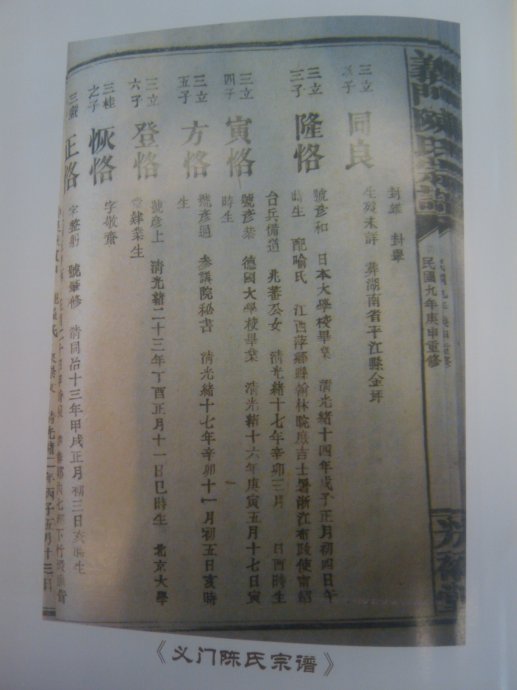 義門陳氏宗譜
民國九年庚申重修
三立
子
同良
生歿未詳 葬湖南省平江縣金坪
三立
三子
隆恪
號彥和 日本大學校畢業 清光緒十四年戊子正月初四日午
時生 配喻氏 江西萍鄉縣翰林院庶吉士署浙江布政使甯紹
台兵備道 兆蕃公女 清光緒十七年辛卯三月 日酉時生
三立
四子
寅恪
號彥恭 德國大學校畢業 清光緒十六年庚寅五月十七日寅
時生
三立
五子
方恪
號彥通 參議院秘書 清光緒十七年辛卯十一月初五日亥時
生
三立
六子
登恪
號彥上 清光緒二十三年丁酉正月十一日巳時生 北京大學
堂肄業生
三桂
之子
恢恪
字敬齋
正恪
字整躬 清同治十三年甲戌正月初三日亥時生
《义门陈氏宗谱》